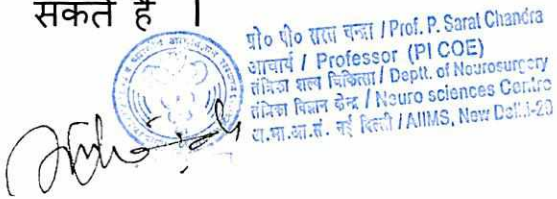 सकते हैं ।
प्रो० पी० शरत चन्द्रा / Prof. P. Sarat Chandra
आचार्य / Professor (PI COE)
तंत्रिका शल्य चिकित्सा / Deptt. of Neurosurgery
तंत्रिका विज्ञान केन्द्र / Neuro sciences Centre
अ.भा.आ.सं. नई दिल्ली / AIIMS, New Delhi-29